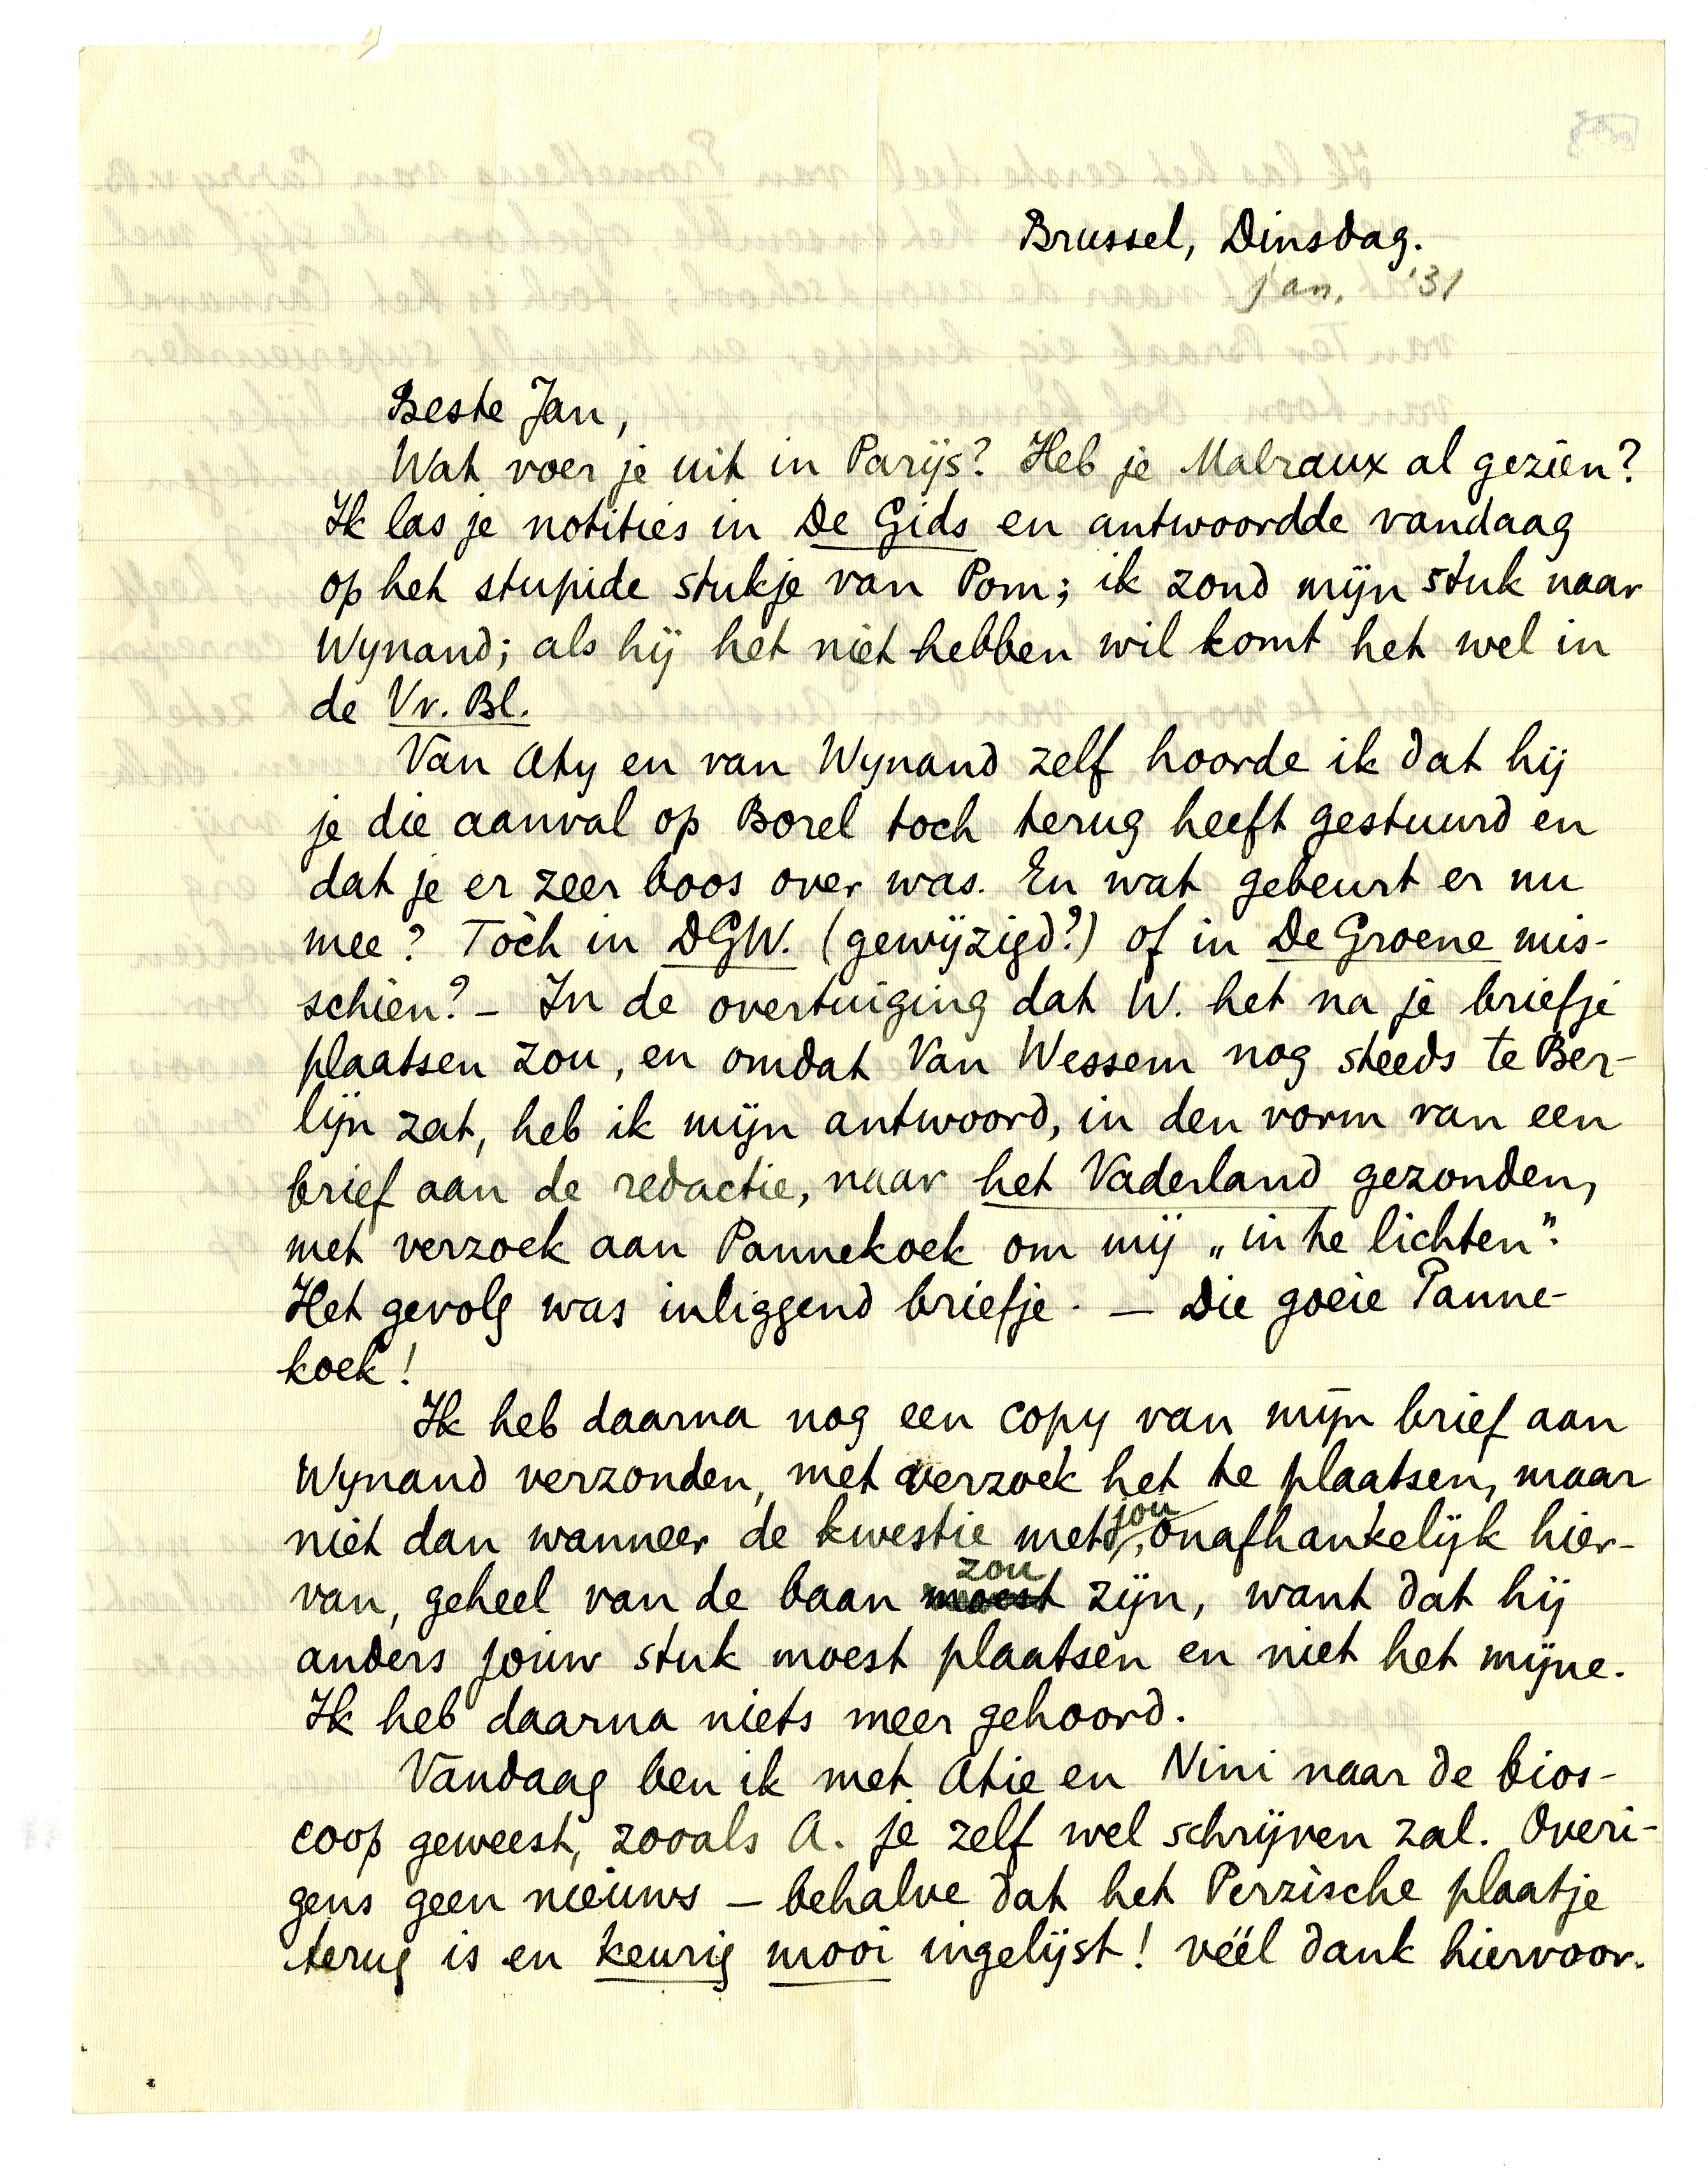 Brussel, Dinsdag.
jan. '31
Beste Jan,
Wat voer je uit in Parijs? Heb je Malraux al gezien?
Ik las je notities in De Gids en antwoordde vandaag
op het stupide stukje van Pom; ik zond mijn stuk naar
Wynand; als hij het niet hebben wil komt het wel in
de Vr. Bl.
Van Aty en van Wynand zelf hoorde ik dat hij
je die aanval op Borel toch terug heeft gestuurd en
dat je er zeer boos over was. En wat gebeurt er nu
mee? Tòch in DGW. (gewijzigd?) of in De Groene mis-
schien? – In de overtuiging dat W. het na je briefje
plaatsen zou, en omdat Van Wessem nog steeds te Ber-
lijn zat, heb ik mijn antwoord, in den vorm van een
brief aan de redactie, naar het Vaderland gezonden,
met verzoek aan Pannekoek om mij „in te lichten".
Het gevolg was inliggend briefje. – Die goeie Panne-
koek!
Ik heb daarna nog een copy van mijn brief aan
Wynand verzonden, met verzoek het te plaatsen, maar
niet dan wanneer de kwestie met jou, onafhankelijk hier-
van, geheel van de baan moest zou zijn, want dat hij
anders jouw stuk moest plaatsen en niet het mijne.
Ik heb daarna niets meer gehoord.
Vandaag ben ik met Atie en Nini naar de bios-
coop geweest, zooals A. je zelf wel schrijven zal. Overi-
gens geen nieuws – behalve dat het Perzische plaatje
terug is en keurig mooi ingelijst! véél dank hiervoor.